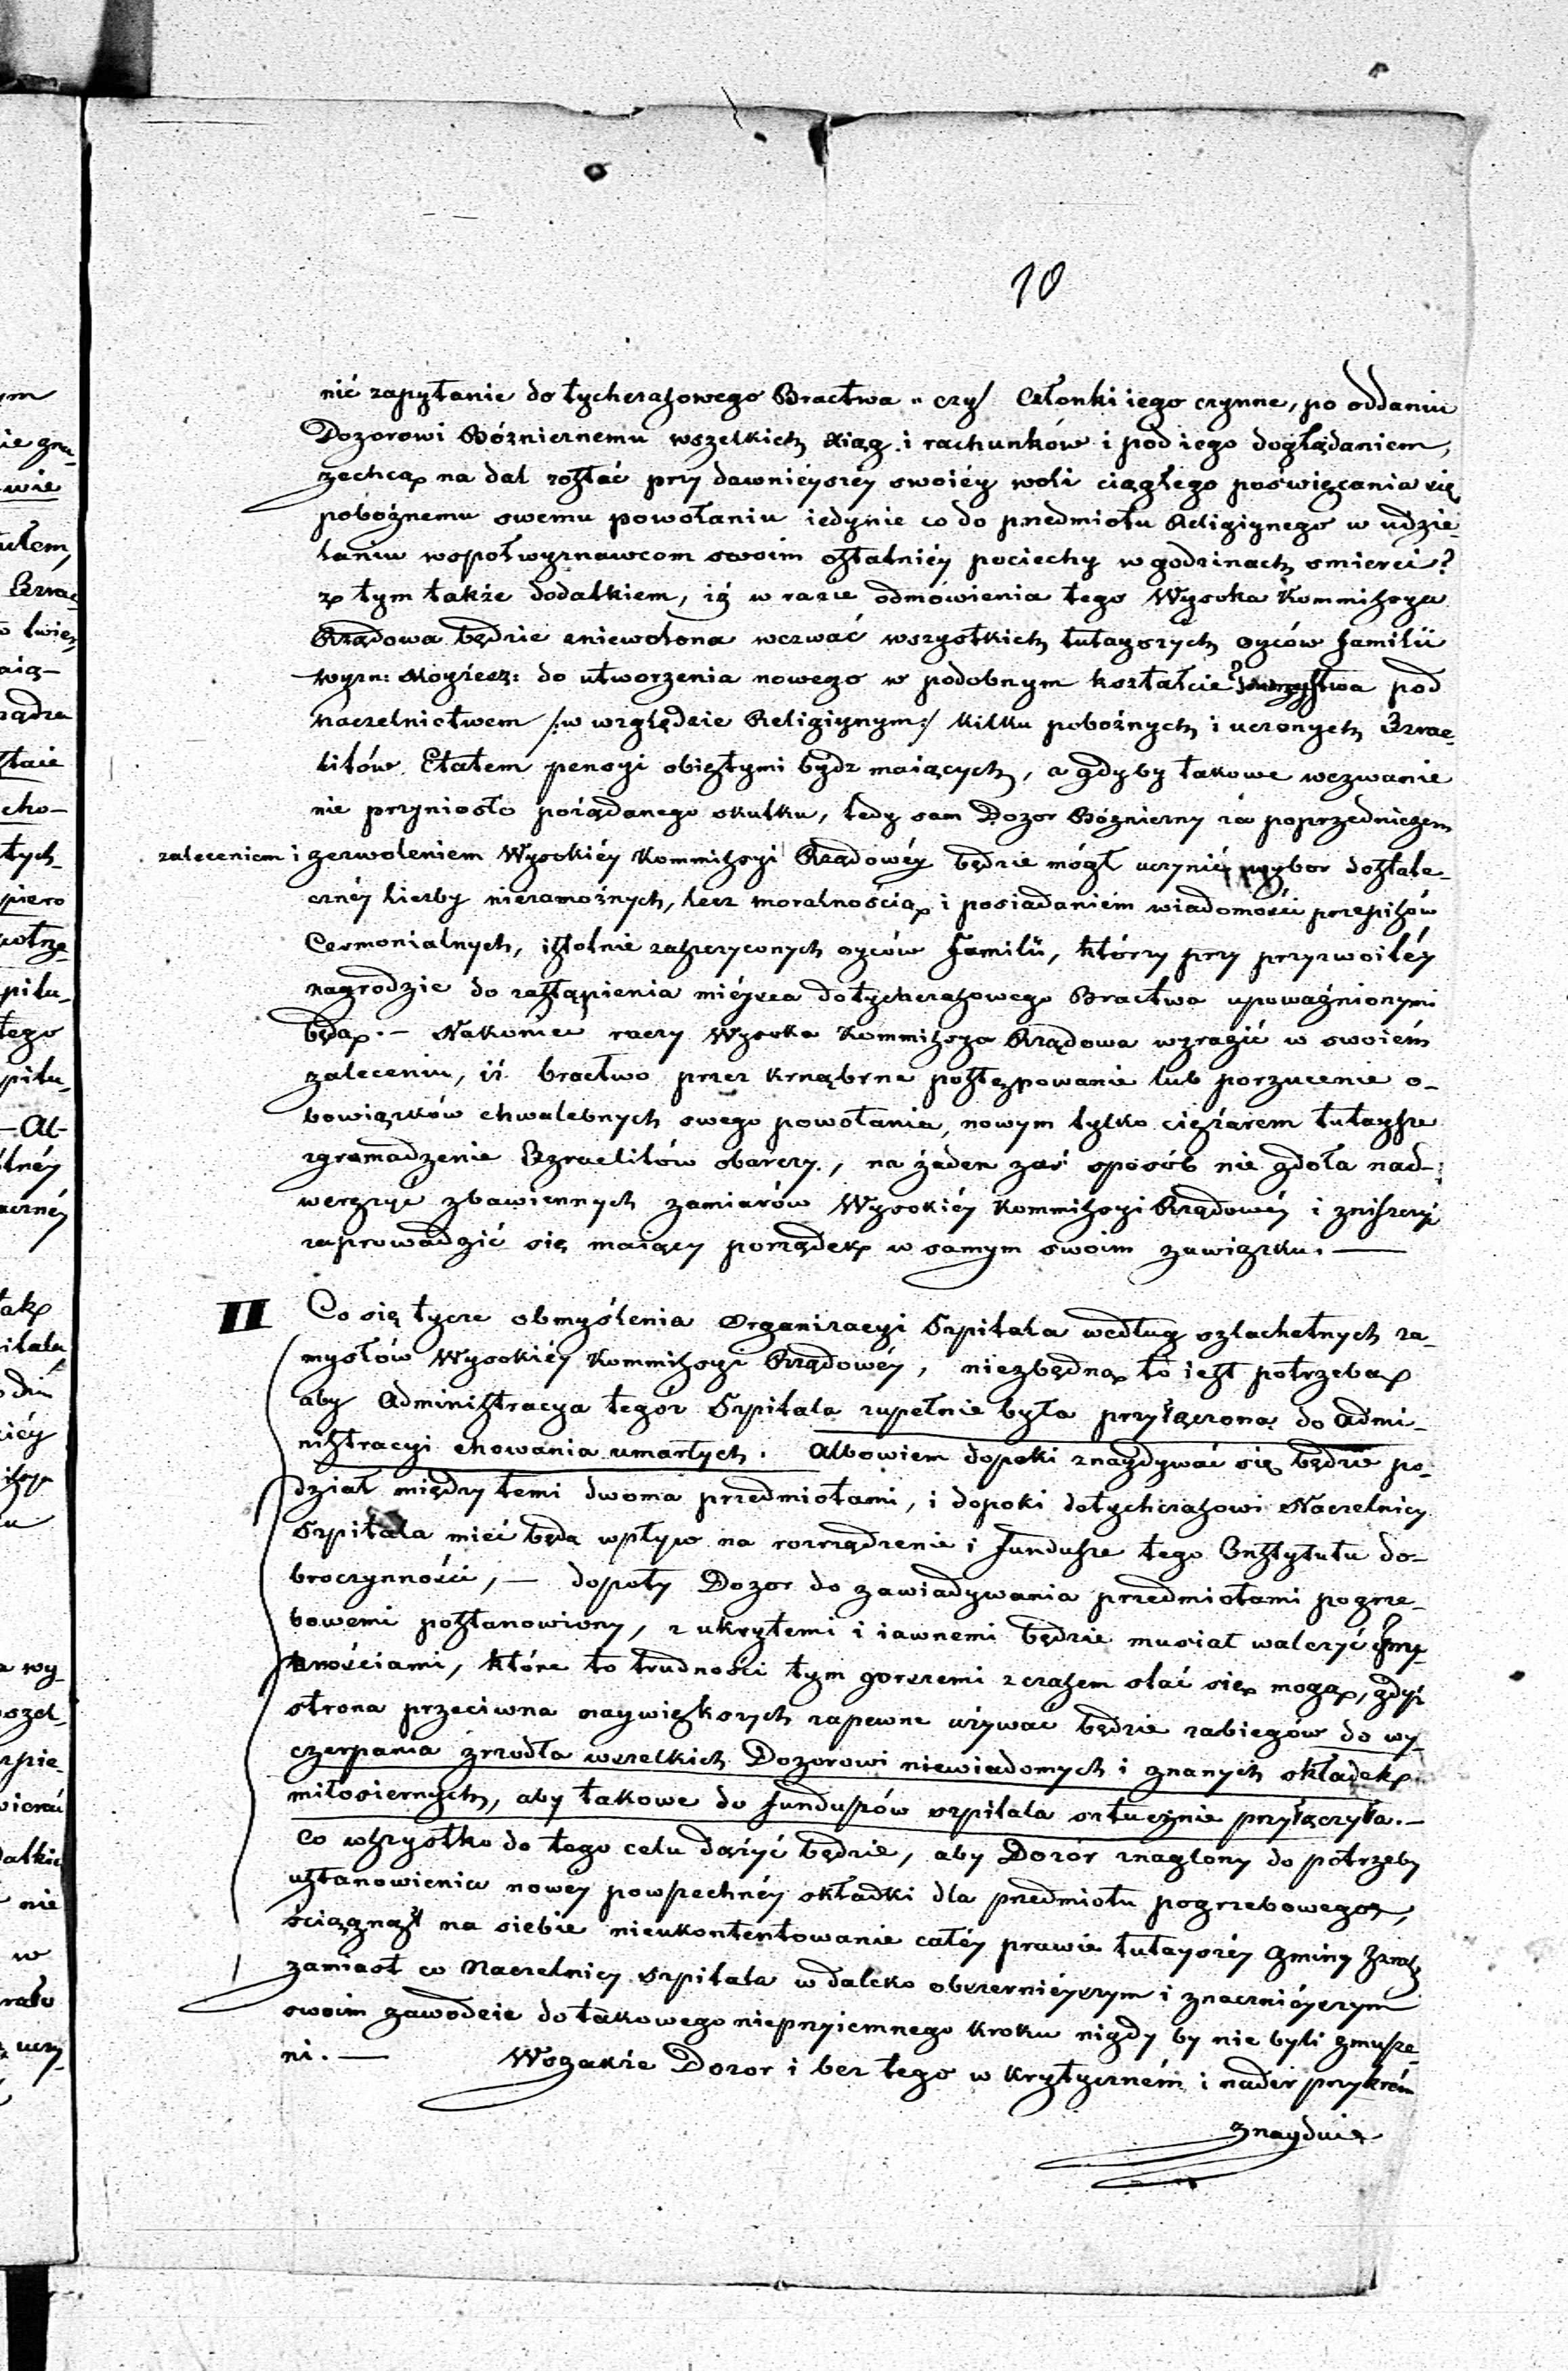 10
nić zapytanie dotychczasowego Bractwa „ czy Członki iego czynne, po oddaniu
Dozorowi Bózniernemu wszelkich Xiąg i rachunków i pod iego doglądaniem,
zechcą na dal zostać przy dawnieyszéy swoiéy woli ciągłego poświęcania się
pobożnemu swemu powołaniu iedynie co do przedmiotu Religiynego w udzie-
laniu wspołwyznawcom swoim ostatniéy pociechy w godzinach smierci?
z tym także dodatkiem, iż w razie odmówienia tego Wysoka Kommissya
Rządowa będzie zniewolona wezwać wszystkich tutayszych oyców familii
wyzn: Moyżesz: do utworzenia nowego w podobnym kształcie Towarzystwa pod
naczelnictwem /:w względzie Religiynym:/ kilku pobożnych i uczonych Izrae-
litów Etatem pensyi obiętymi bydz maiących, a gdyby takowe wezwanie
nie przyniosło pożądanego skutku, tedy sam Dozor Bóżnierny za poprzedniczem
zaleceniem i zezwoleniem Wysokiéy Kommissyi Rządowéy będzie mógł uczynić wybor dostate-
cznéy liczby niezamożnych, lecz moralnością i posiadaniem wiadomości przepisów
Cermonialnych, istotnie zaszczyconych oyców Familii, którzy przy przyzwoitéy
nagrodzie do zastąpienia mieysca dotychczasowego Bractwa upoważnionymi
będą. — Nakoniec raczy Wysoka Kommissya Rządowa wyrazić w swoiém
zaleceniu, iż bractwo przez krnąbrne postępowanie lub porzucenie o-
bowiązków chwalebnych swego powołania, nowym tylko ciężarem tutaysze
zgromadzenie Izraelitów obarczy, na żaden zaś sposób nie zdoła nad-
werężyć zbawiennych zamiarów Wysokiéy Kommissyi Rządowéy i zniszczyć
zaprowadzić się maiący porządek w samym swoim zawiązku. —
II Co się tycze obmyślenia Organizacyi Szpitala według szlachetnych za-
mysłów Wysokiéy Kommissyi Rządowéy, niezbędną to iest potrzebą
aby Administracya tegoż Szpitala zupełnie była przyłączoną do Admi-
nistracyi chowania umarłych. Albowiem dopoki znaydywać się będzie po-
dział między temi dwoma przedmiotami, i dopoki dotychczasowi Naczelnicy
Szpitala mieć będą wpływ na rozrządzenie i fundusze tego Instytutu do-
broczynności, — dopoty Dozor do zawiadywania przedmiotami pogrze-
bowemi postanowiony, z ukrytemi i iawnemi będzie musiał walczyć
które to trudności tym gorszemi z czasem stać się mogą, gdyż
strona przeciwna naywiększych zapewne używać będzie zabiegów do wy-
czerpania zrzodła wszelkich Dozorowi niewiadomych i znanych składek
miłosiernych, aby takowe do funduszów szpitala sztucznie przyłączyła. —
Co wszystko do tego celu dążyć będzie, aby Dozór znaglony do potrzeby
ustanowienia nowey powszechnéy składki dla przedmiotu pogrzebowego,
ściągnął na siebie nieukontentowanie całéy prawie tutayszéy Gminy Izrael
zamiast co Naczelnicy szpitala w daleko obszernieyszym i znacznieyszym
swoim zawodzie do takowego nieprzyiemnego kroku nigdy by nie byli zmusze-
ni. — Wszakże Dozor i bez tego w krytyczném i nader przykrém
znayduie